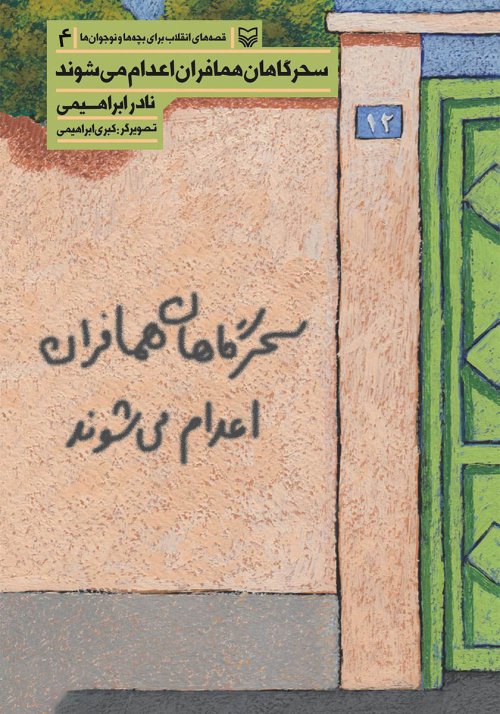 قصه‌های انقلاب برای بچه‌ها و نوجوان‌ها | ۴
سحرگاهان همافران اعدام می‌شوند
نادر ابراهیمی
تصویرگر: کبری ابراهیمی
۱۲
سحرگاهان همافران
اعدام می‌شوند